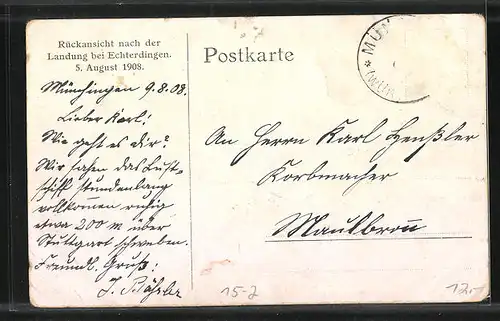 Rückansicht nach der
Landung bei Echterdingen.
5. August 1908.
Postkarte
Münchingen 9.8.08.
Lieber Karl!
Wie geht es dir?
Wir sahen das Luft-
schiff stundenlang
vollkommen ruhig
etwa 200 m über
Stuttgart schweben.
Freundl. Gruß:
J.
An Herrn Karl Henßler
Korbmacher
Maulbronn
MÜN
(WÜR
15-2
12.-